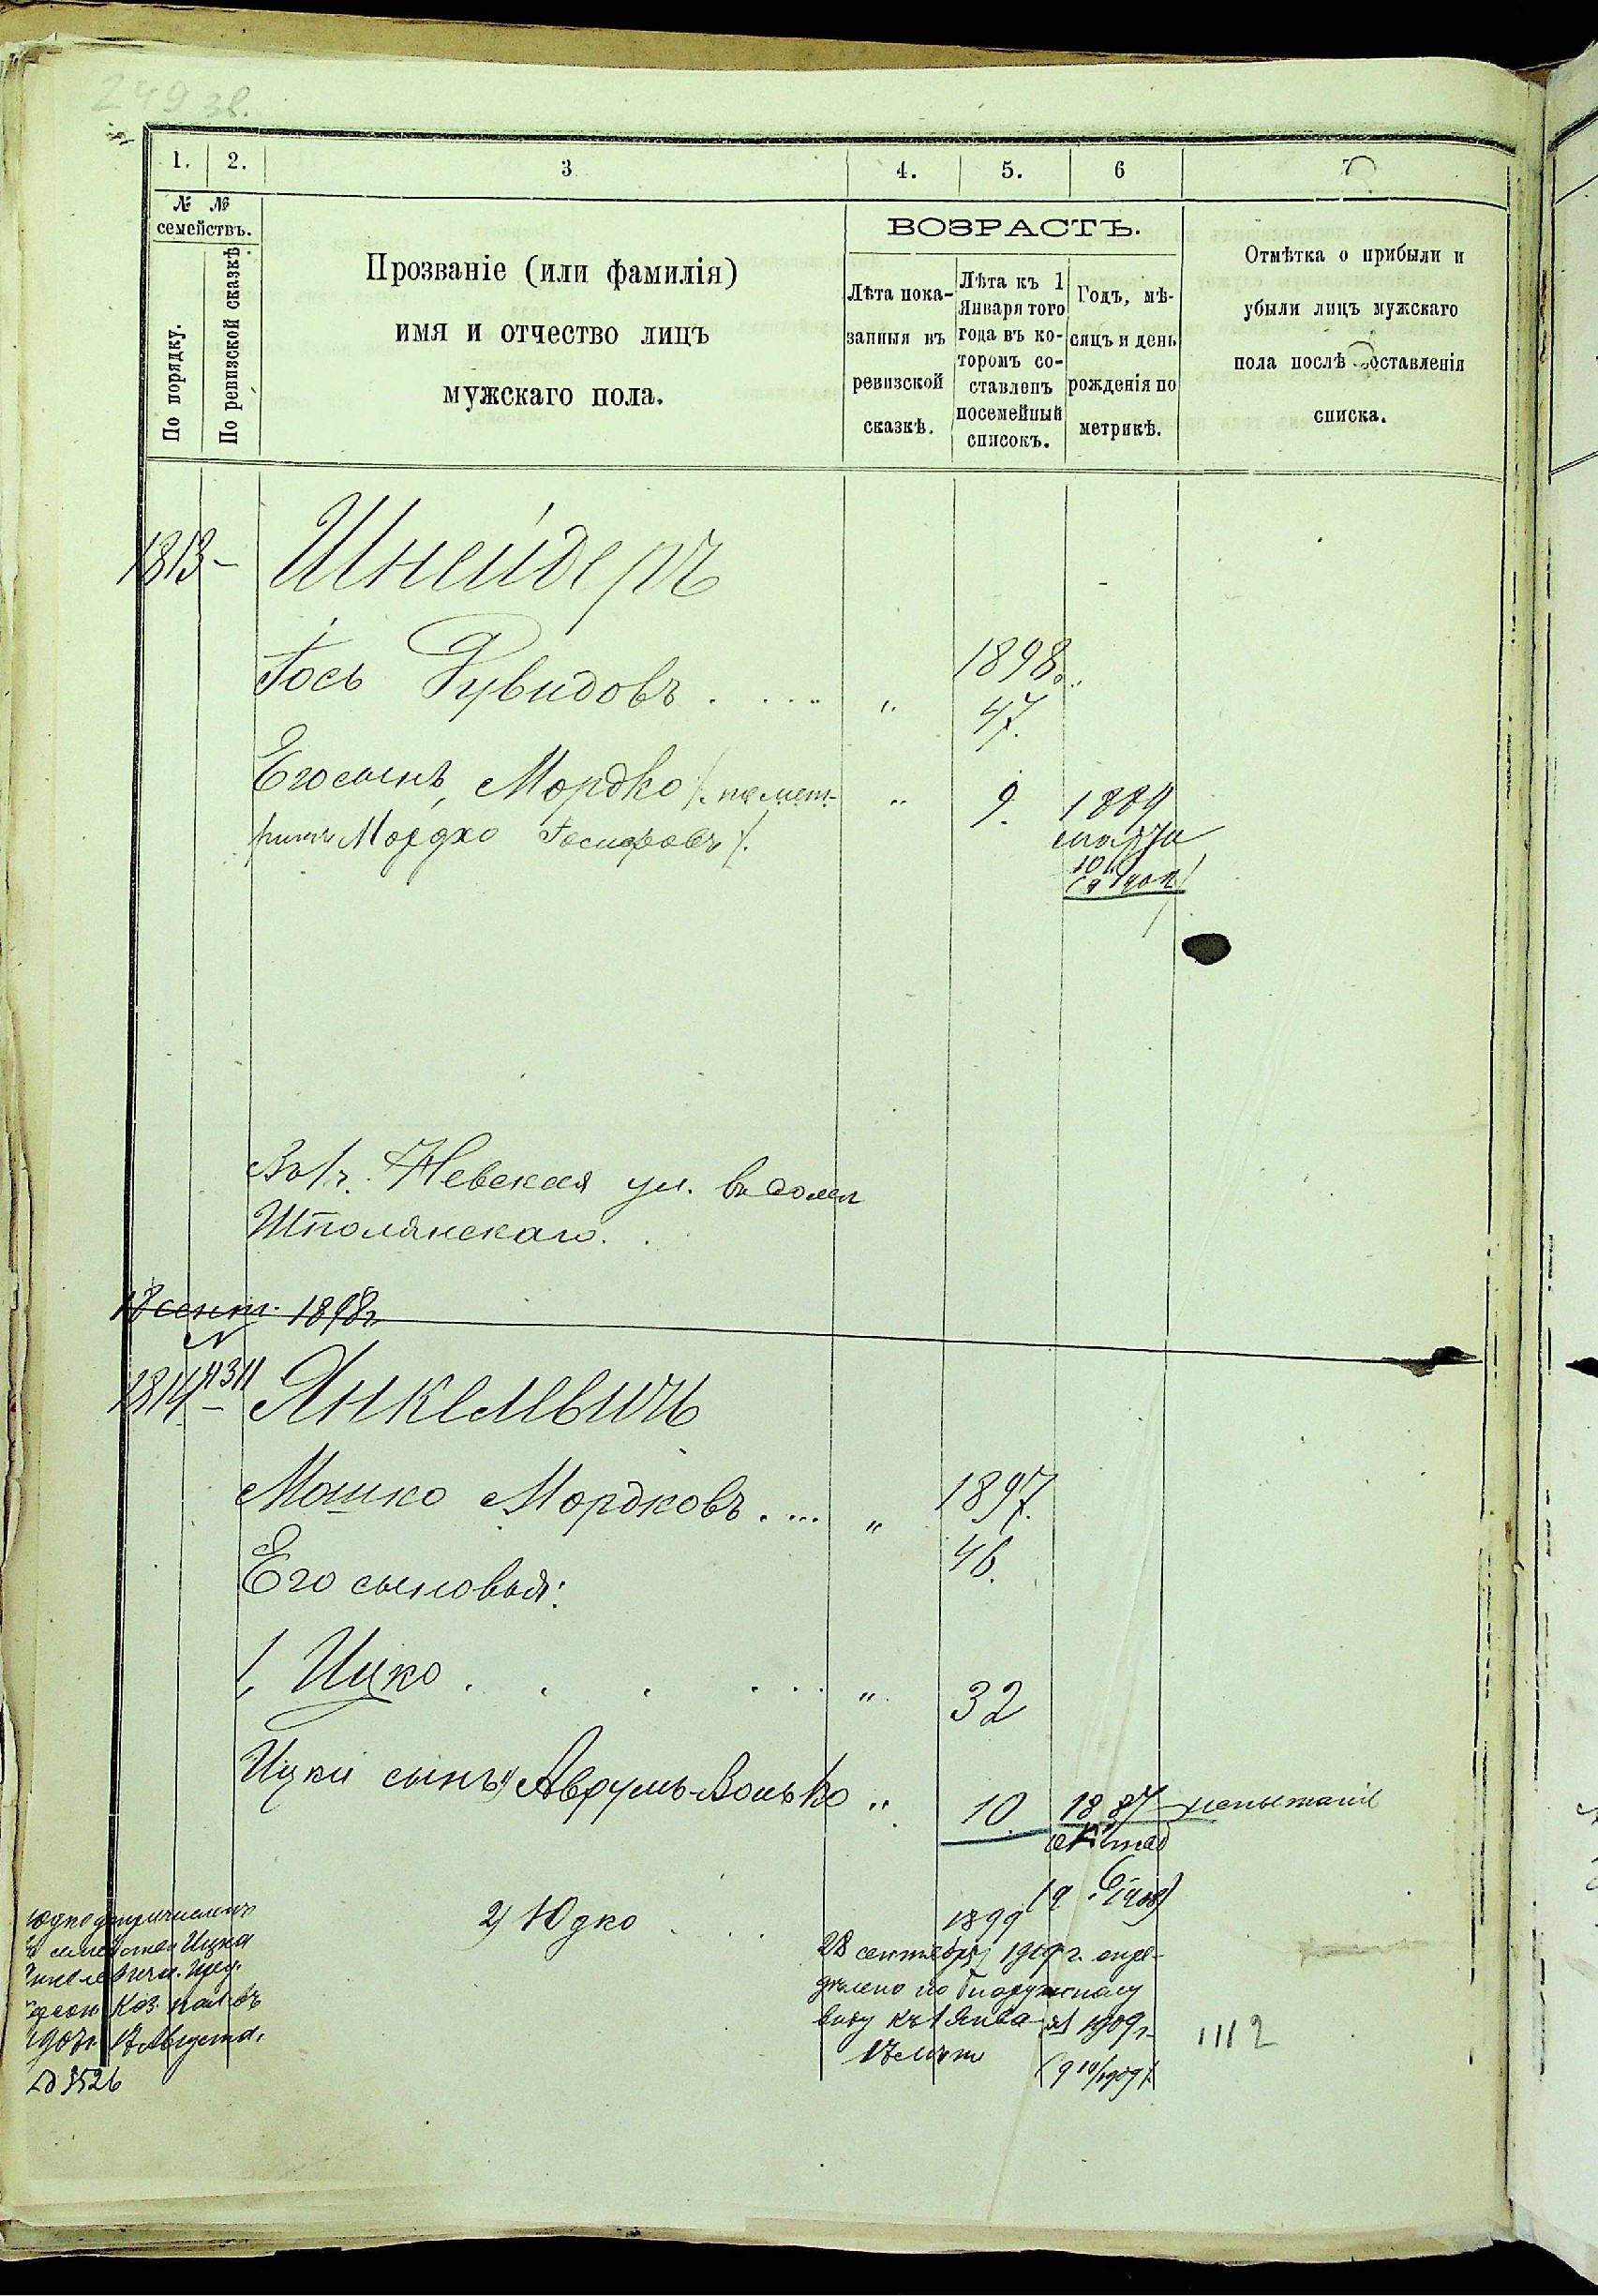 249 зв.
1. 2. 3 4. 5. 6 7
№ № семействъ.
По порядку.
По ревизской сказкѣ
Прозваніе (или фамилія)
имя и отчество лицъ
мужскаго пола.
ВОЗРАСТЪ.
Лѣта пока-
занныя въ
ревизской
сказкѣ.
Лѣта къ 1
Января того
года въ ко-
торомъ со-
ставленъ
посемейный
списокъ.
Годъ, мѣ-
сяцъ и день
рожденія по
метрикѣ.
Отмѣтка о прибыли и
убыли лицъ мужскаго
пола послѣ составленія
списка.
1813 - Шнейдеръ
1898.
Іось Рувидовъ . . . . „ 47.
Его сынъ, Мордко /. по мет- „ 9. 1889
рикѣ Мордхо /. марта
10
Невская ул. въ домѣ
Шполянскаго.
18 сент. 1898 г.
№
1814 - 4311 Янкелевичъ
Мошко Мордковъ . . . . „ 1897.
46.
Его сыновья:
1, Ицко . . . . . . „ 32
Ицки сынъ 1) Аврумъ-Волько „ 10 1887
2) Юдко . . . 1899
28 сентября 1909 г. опре-
дѣлено по наружному
виду къ 1 Янва- 1909 г.
(9 10/1909).
1112
Юдко причисленъ
семейство Ицка
Янкелевича. Пред.
Херсон. Каз. пал-тъ
Августа.
3526